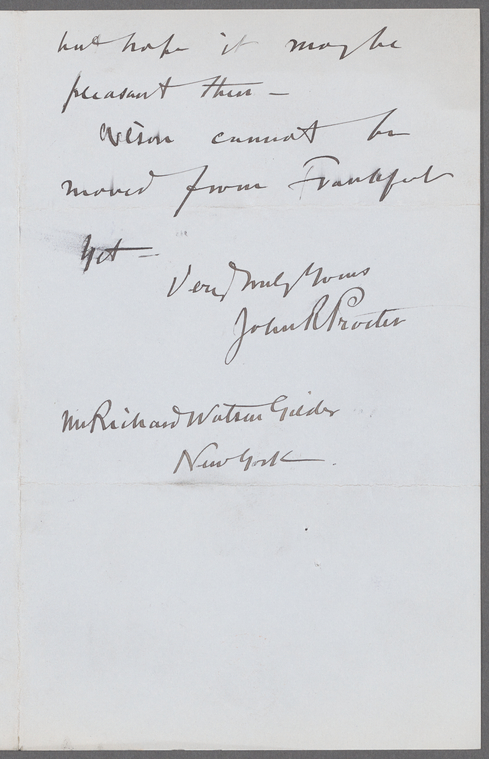 but hope it may be
pleasant then —
Nelson cannot be
moved from Frankfort
Yet —
Very truly Yours
John R Procter
Mr Richard Watson Gilder
New York .